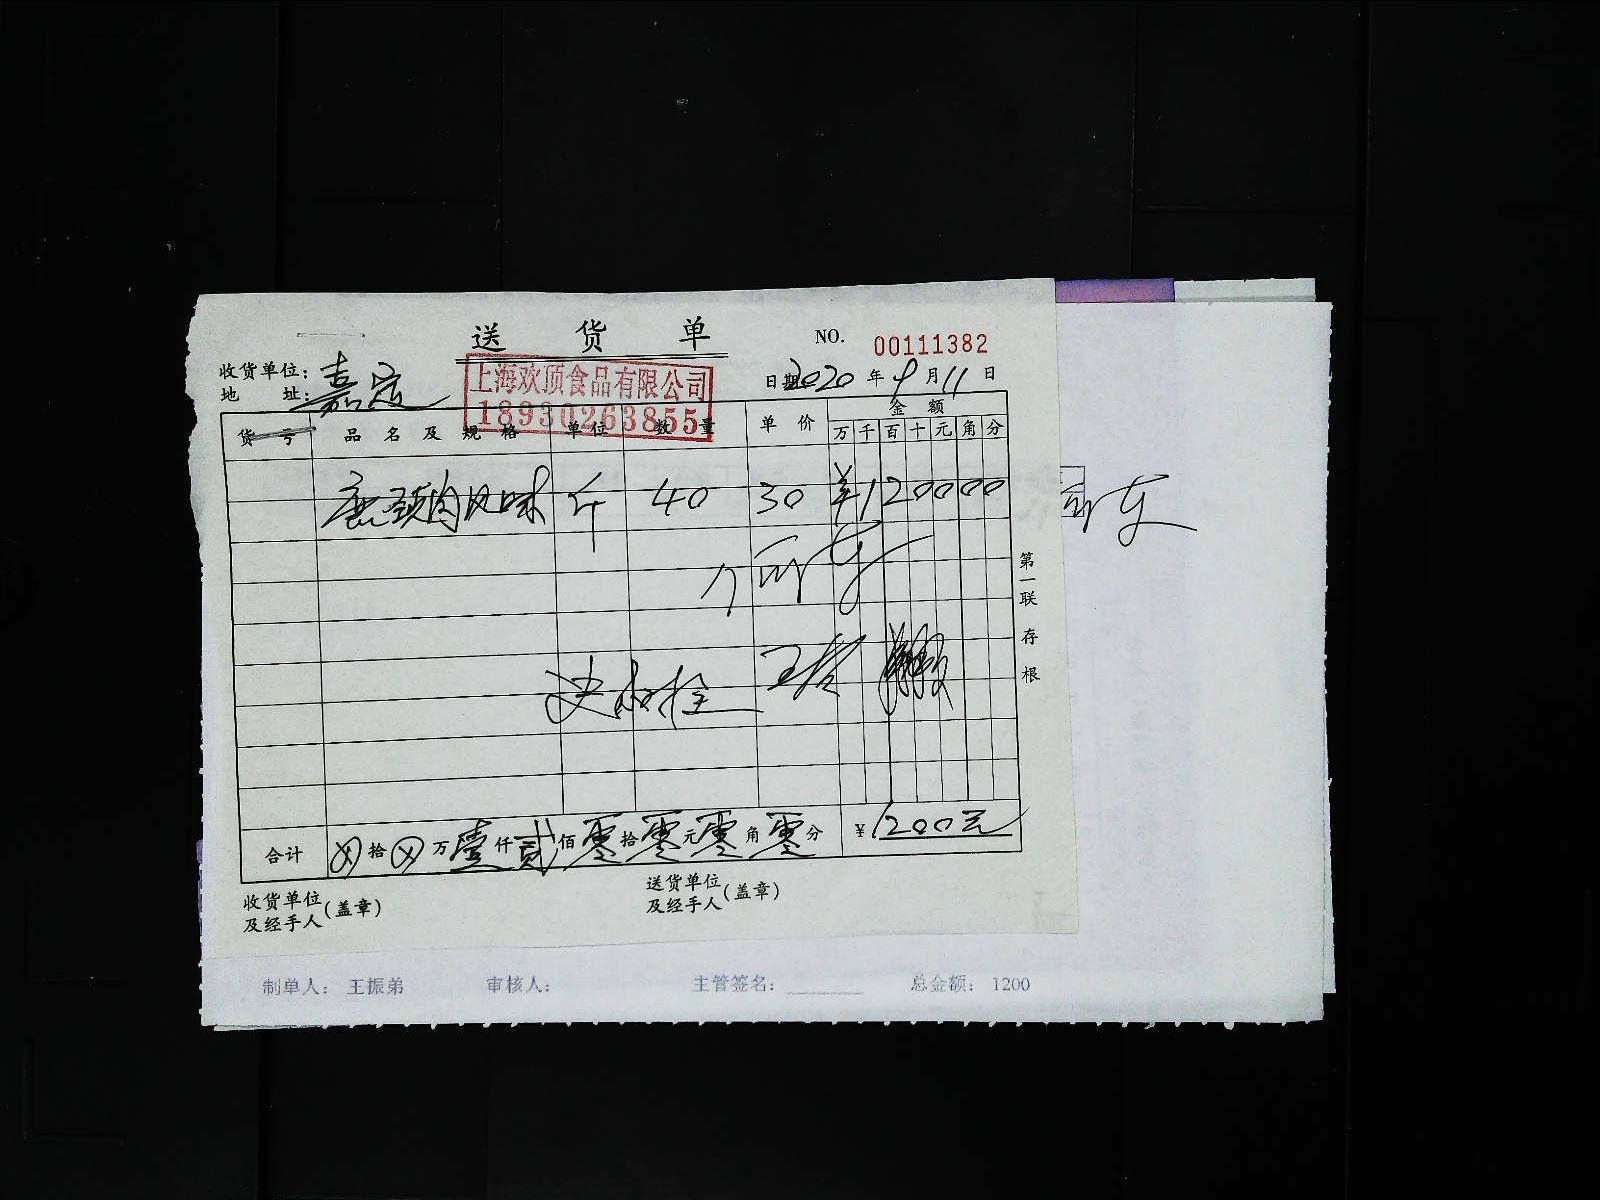 送 货 单
NO. 00111382
收货单位:
地 址: 嘉定
上海欢顶食品有限公司
18930263855
日期 2020 年 9 月 11 日
货 号 品 名 及 规 格 单位 数 量 单 价 金 额
万 千 百 十 元 角 分
斤 40 30 ¥120000
第一联 存根
合计 ⊗ 拾 ⊗ 万 壹 仟 贰 佰 零 拾 零 元 零 角 零 分 ¥ 1200元
收货单位
及经手人 (盖章)
送货单位
及经手人 (盖章)
制单人: 王振弟 审核人: 主管签名: 总金额: 1200